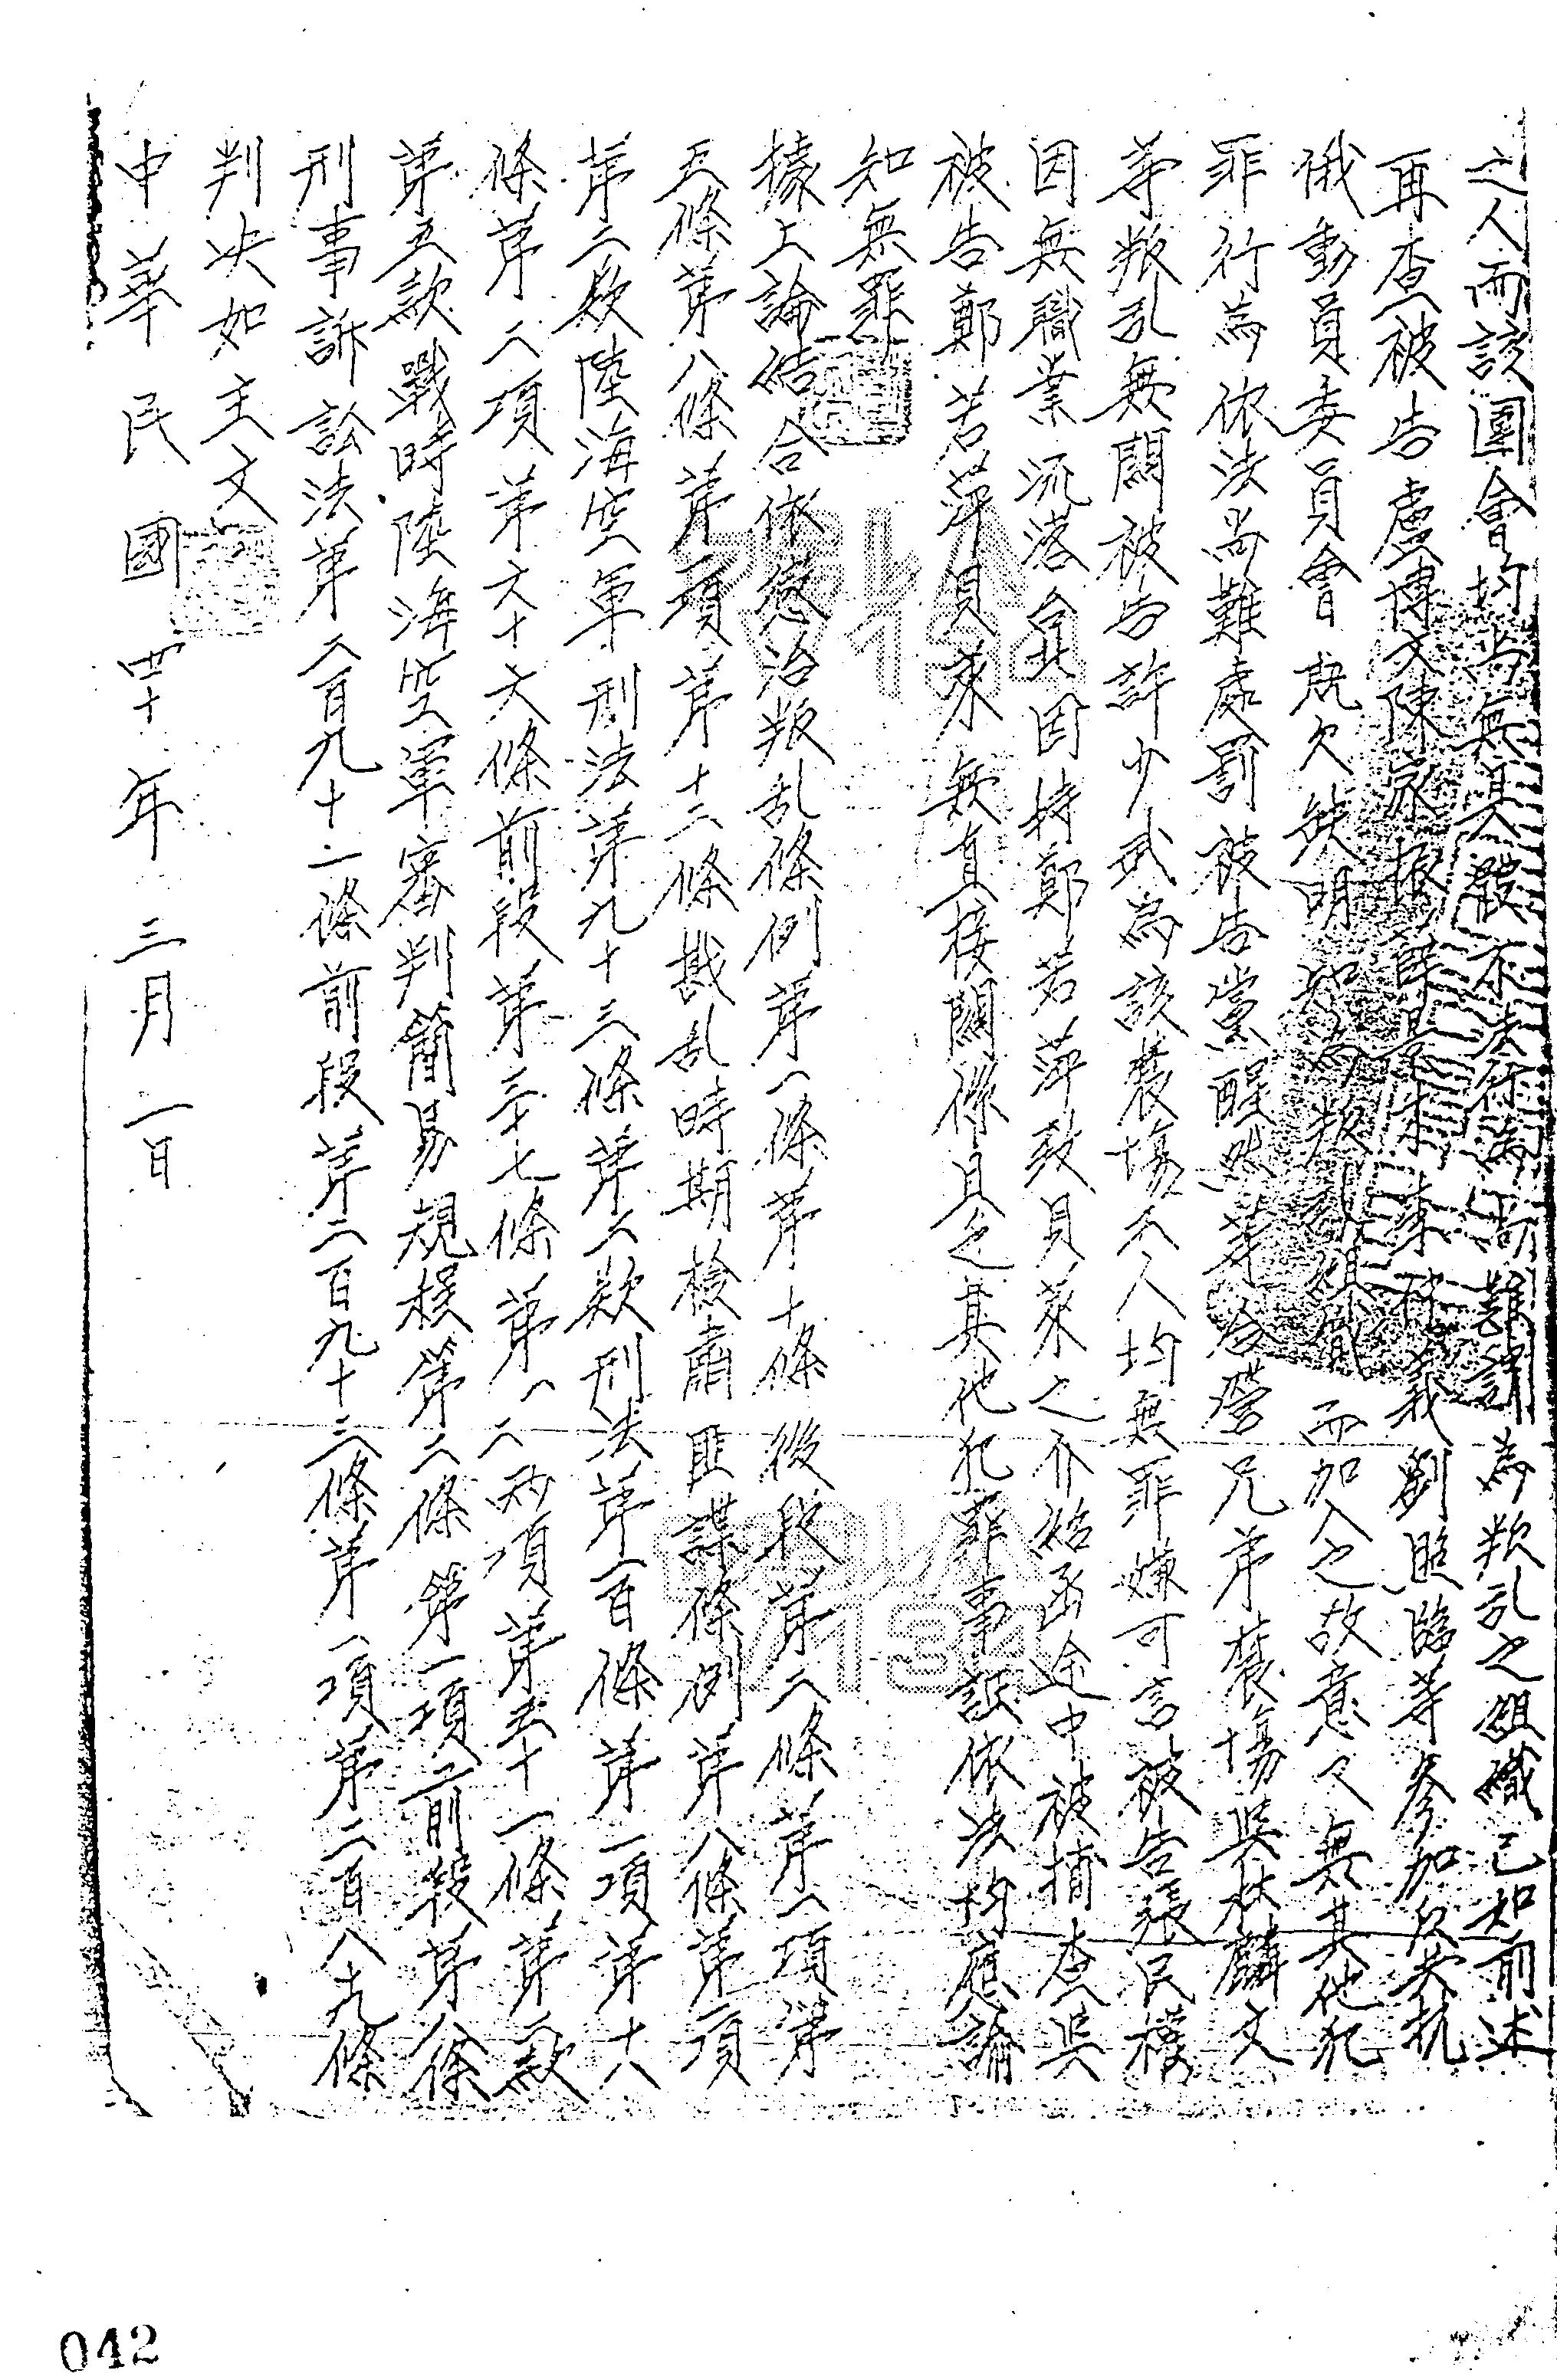 之人而該團會均尚無具體不法行為尚難謂為叛乱之組織已如前述
再查被告盧博文陳家振薛 李 義劉照臨等參加反共抗
俄動員委員會既欠缺明知為叛亂組織而加入之故意又無其他犯
罪行為依法尚難處罰被告黨醒然等合營兄弟農場吳秋麟文
等叛乱無關被告許少武為該農場工人均無罪嫌可言被告張民樸
因無職業流落台北因持鄭若萍致貝萊之介紹函途中被捕查與
被告鄭若萍貝萊無直接關係且乏其他犯罪事証依法均應諭
知無罪
據上論結合依懲治叛乱條例第一條第十條後段第二條第一項第
五條第八條第一項第十二條戡乱時期檢肅匪諜條例第八條第一項
第二款陸海空軍刑法第九十三條第二款刑法第一百條第一項第十八
條第二項第六十六條前段第三十七條第一二兩項第五十一條第一款
第五款戰時陸海空軍審判簡易規程第二條第一項前段第八條
刑事訴訟法第二百九十一條前段第二百九十三條第一項第二百八九條
判決如主文
中華民國四十年三月一日
042